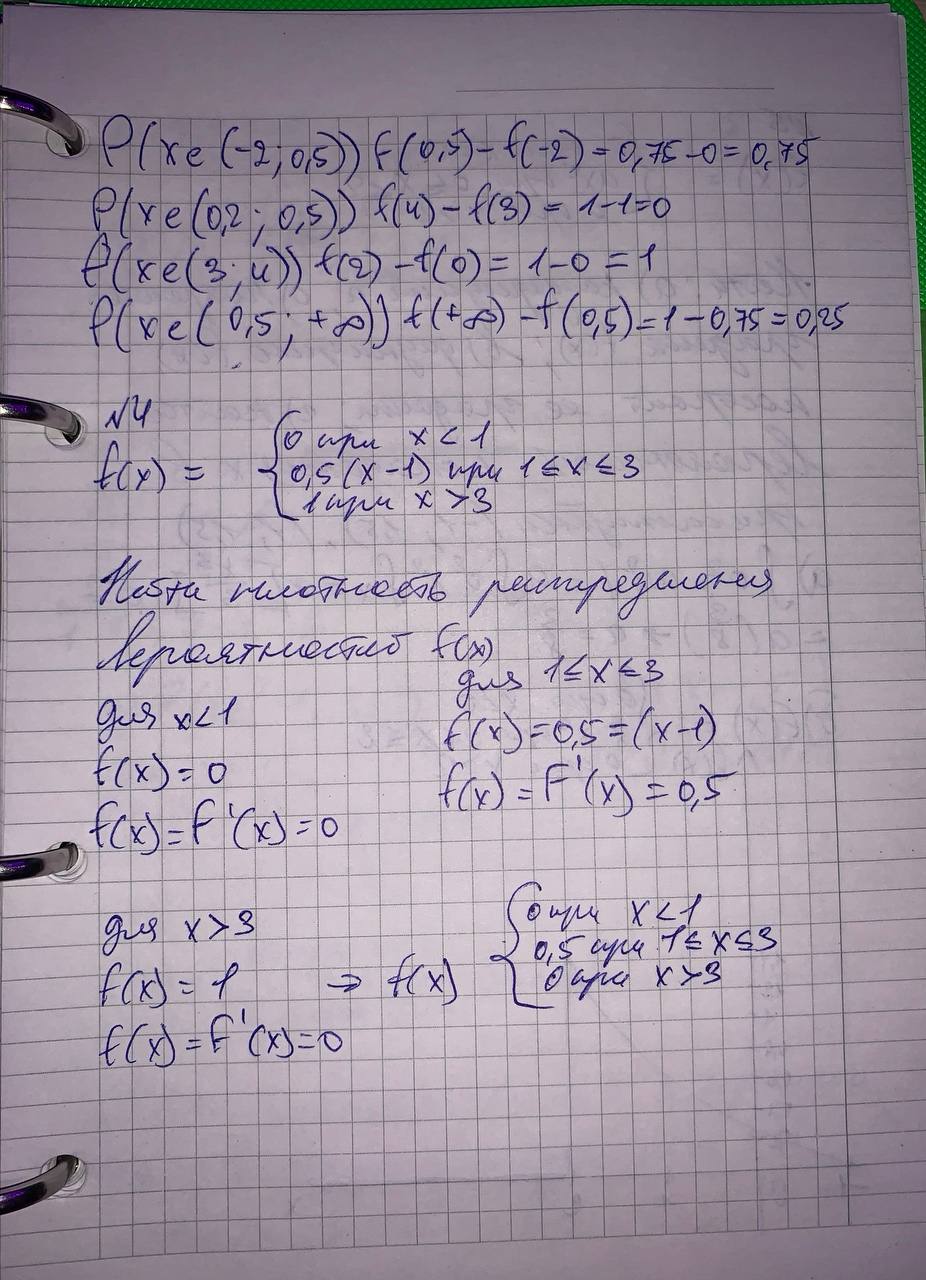 P(xe(-2;0,5)) f(0,5)-f(-2)=0,75-0=0,75
P(xe(0,2;0,5)) f(4)-f(3)=1-1=0
P(xe(3;4)) f(2)-f(0)=1-0=1
P(xe(0,5;+∞)) f(+∞)-f(0,5)=1-0,75=0,25
№4
0 при x<1
f(x)= { 0,5(x-1) при 1≤x≤3
1 при x>3
Найти плотность распределения
вероятностей f(x)
для x<1
f(x)=0
f(x)=F'(x)=0
для 1≤x≤3
f(x)=0,5=(x-1)
f(x)=F'(x)=0,5
для x>3
f(x)=1
f(x)=F'(x)=0
0 при x<1
→ f(x) { 0,5 при 1≤x≤3
0 при x>3